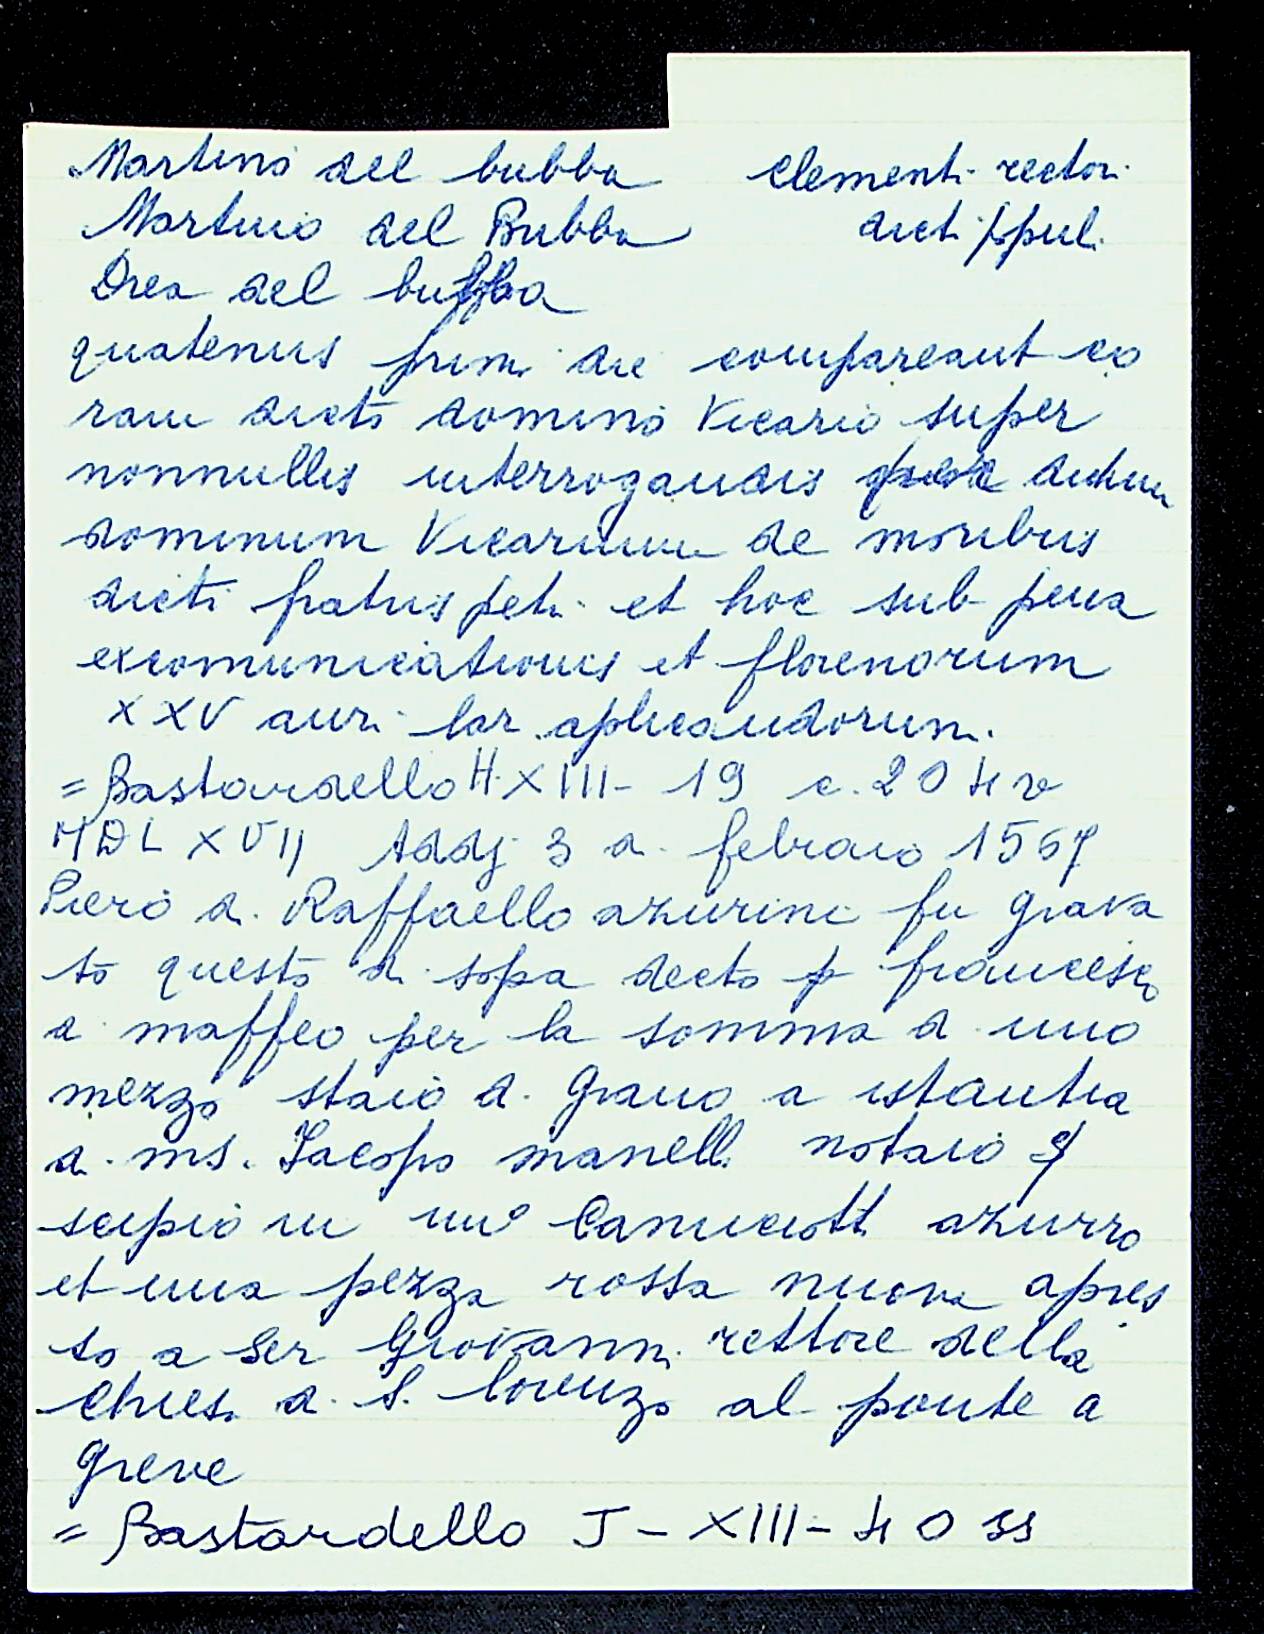 Martino del bubba clementi rectori
Martino del Bubba dicti ppuli
Drea del bubba
quatenus primi die compareant co
ram dicto domino Vicario super
nonnullis interrogandis dictum
dominum Vicarium de moribus
dicti fratris petri et hoc sub pena
excomunicationis et florenorum
XXV auri lar. aplicandorum.
= Bastardello H-XIII- 19 c. 204v
MDLXVII Addj 3 di febraio 1567
Piero di Raffaello azurini fu grava
to questo di sopa decto p francesco
di maffeo per la somma di uno
mezzo staio di grano a istantia
di ms. Iacopo manelli notaio
scipio in uno Canuciotti azurro
et una pezza rossa nuova apres
so a Ser Giovanni rettore della
chiesa di S. lorenzo al ponte a
greve
= Bastardello J-XIII-40 ss